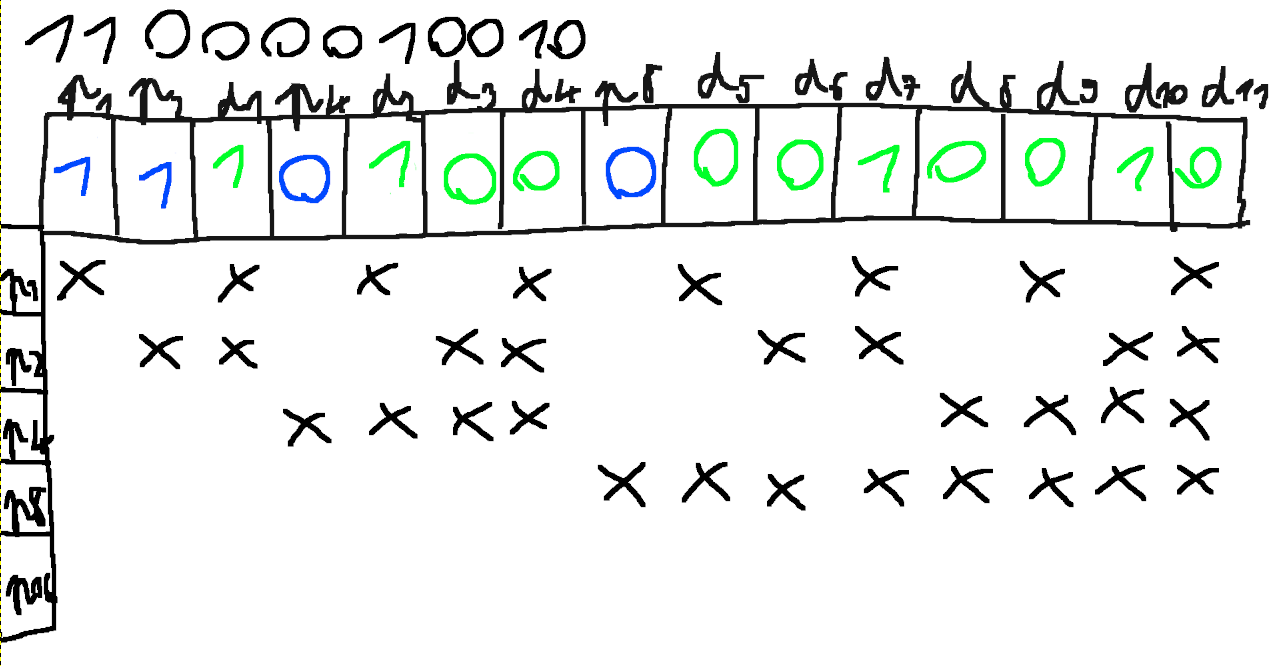 11 0000 100 10
p1 p2 d1 p4 d2 d3 d4 p8 d5 d6 d7 d8 d9 d10 d11
1 1 1 0 1 0 0 0 0 0 1 0 0 1 0
p1 x x x x x x x x
p2 x x x x x x x x
p4 x x x x x x x x
p8 x x x x x x x x